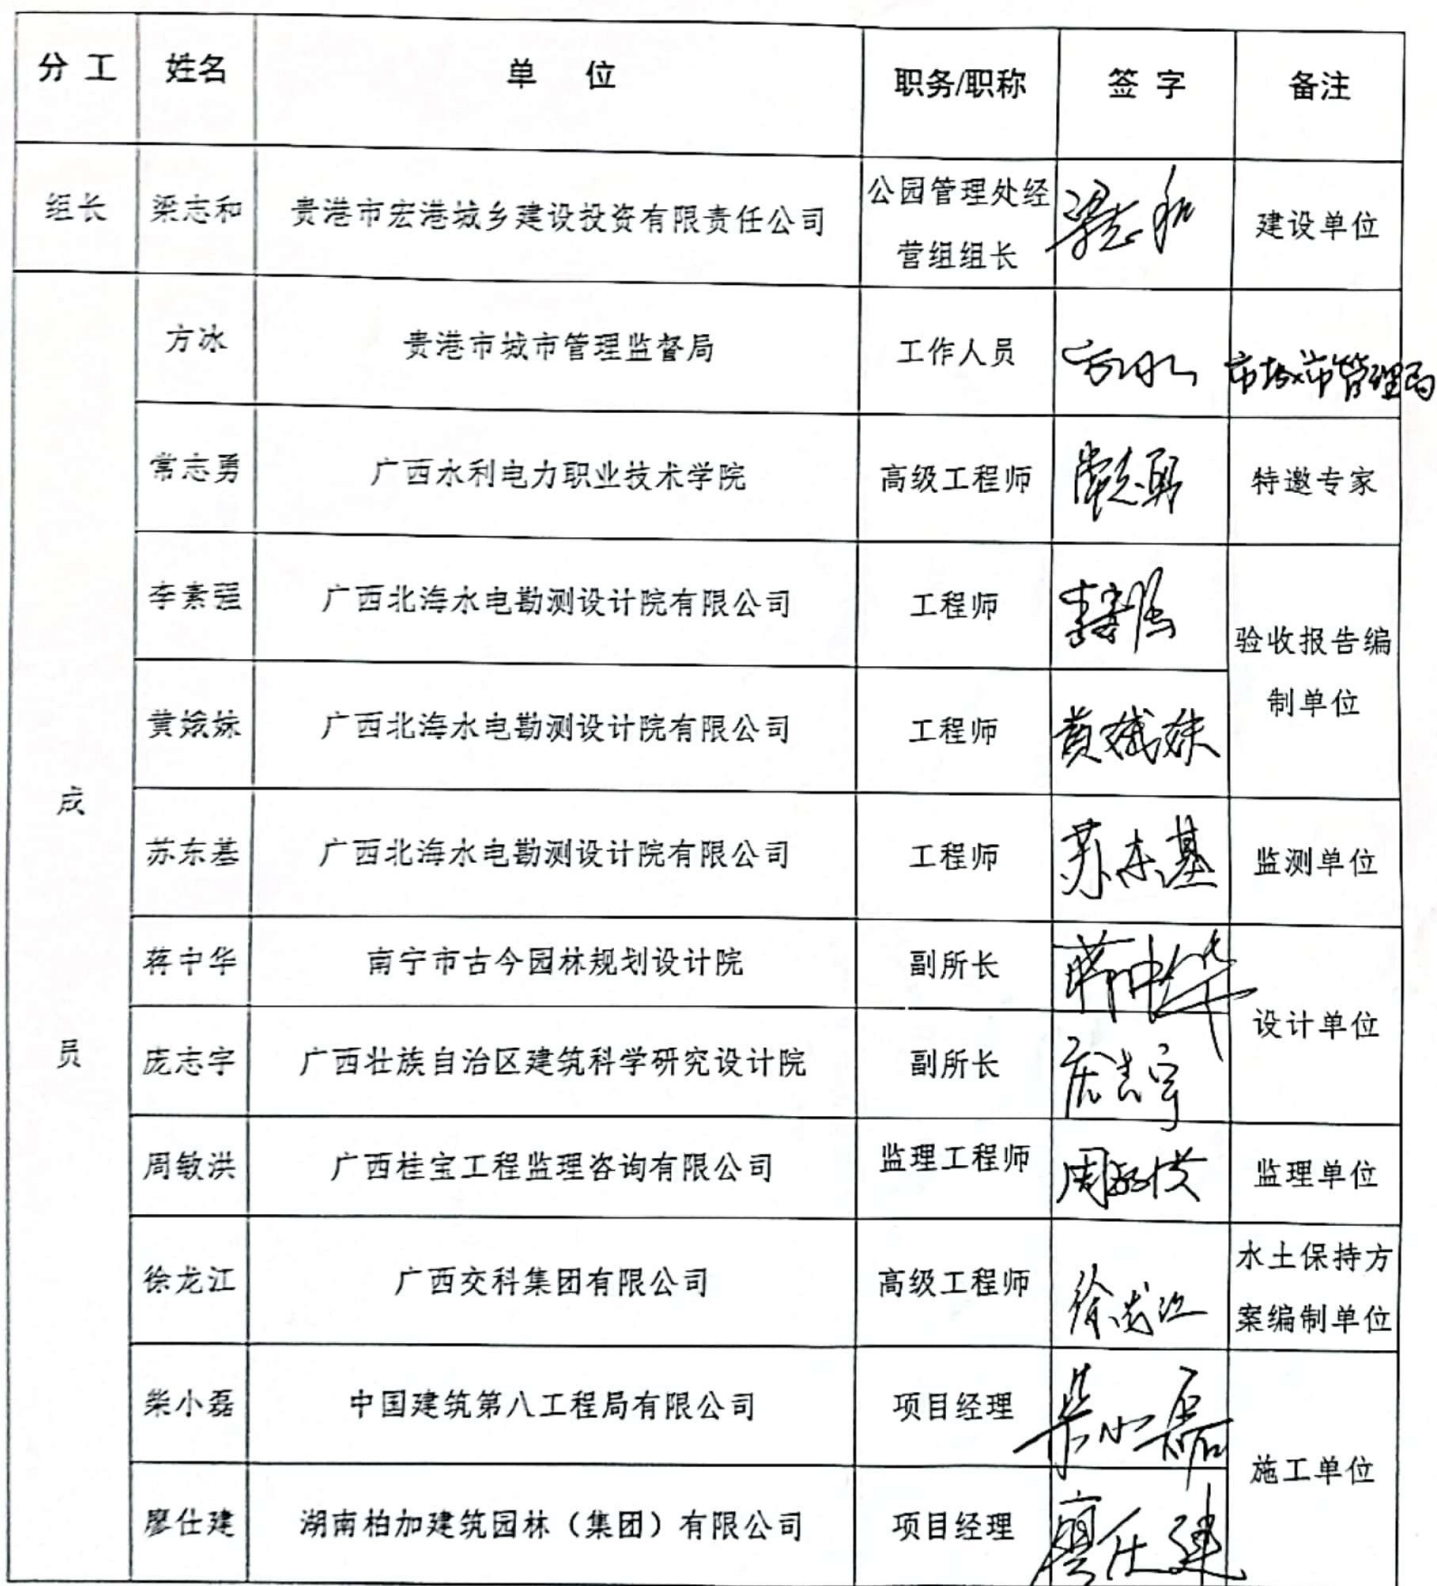 分工 姓名 单位 职务/职称 签字 备注
组长 梁志和 贵港市宏港城乡建设投资有限责任公司 公园管理处经 梁志和 建设单位
营组组长
方冰 贵港市城市管理监督局 工作人员 方冰 市城市管理局
常志勇 广西水利电力职业技术学院 高级工程师 常志勇 特邀专家
李素强 广西北海水电勘测设计院有限公司 工程师 李素强 验收报告编
制单位
黄娥妹 广西北海水电勘测设计院有限公司 工程师 黄娥妹
成
苏东基 广西北海水电勘测设计院有限公司 工程师 苏东基 监测单位
蒋中华 南宁市古今园林规划设计院 副所长 蒋中华 设计单位
员
庞志宇 广西壮族自治区建筑科学研究设计院 副所长 庞志宇
周敏洪 广西桂宝工程监理咨询有限公司 监理工程师 周敏洪 监理单位
徐龙江 广西交科集团有限公司 高级工程师 徐龙江 水土保持方
案编制单位
柴小磊 中国建筑第八工程局有限公司 项目经理 柴小磊 施工单位
廖仕建 湖南柏加建筑园林（集团）有限公司 项目经理 廖仕建